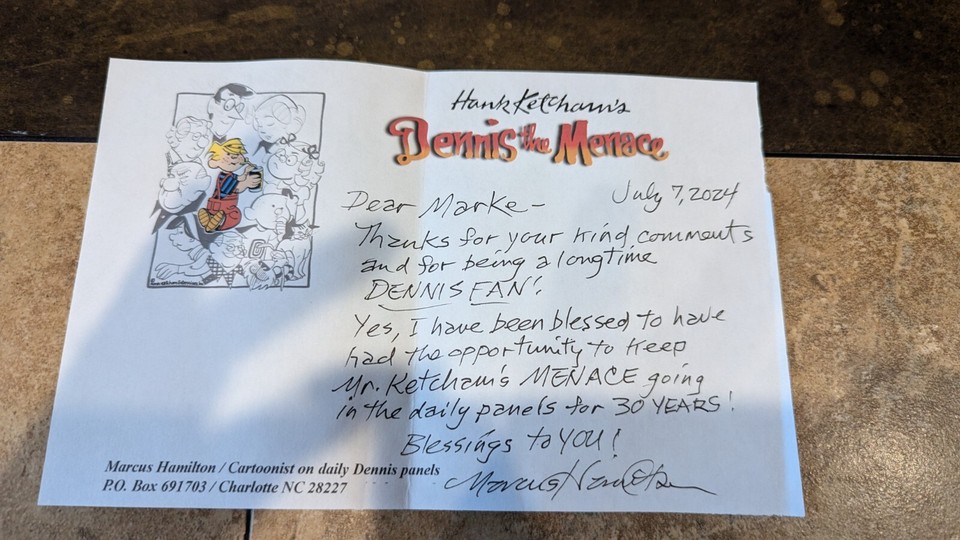 Hank Ketcham's
Dennis the Menace
July 7, 2024
Dear Marke-
Thanks for your kind comments
and for being a longtime
DENNIS FAN!
Yes, I have been blessed to have
had the opportunity to keep
Mr. Ketcham's MENACE going
in the daily panels for 30 YEARS!
Blessings to YOU!
Marcus Hamilton
Marcus Hamilton / Cartoonist on daily Dennis panels
P.O. Box 691703 / Charlotte NC 28227